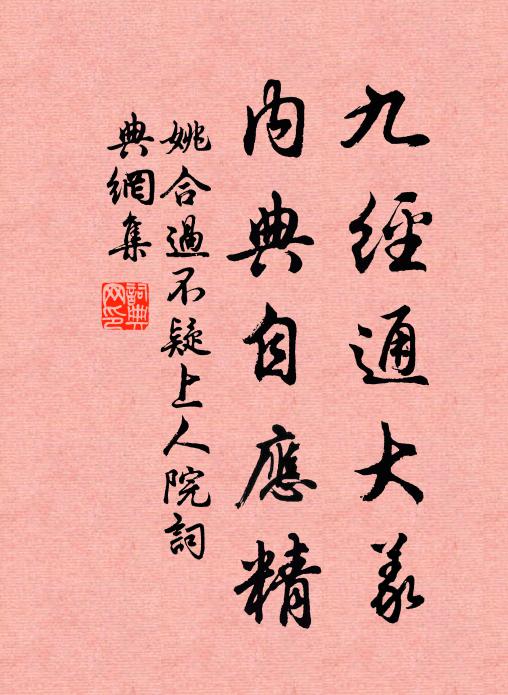 九經通大義
内典自應精
姚合過不疑上人院詞
典網集
詞典網印